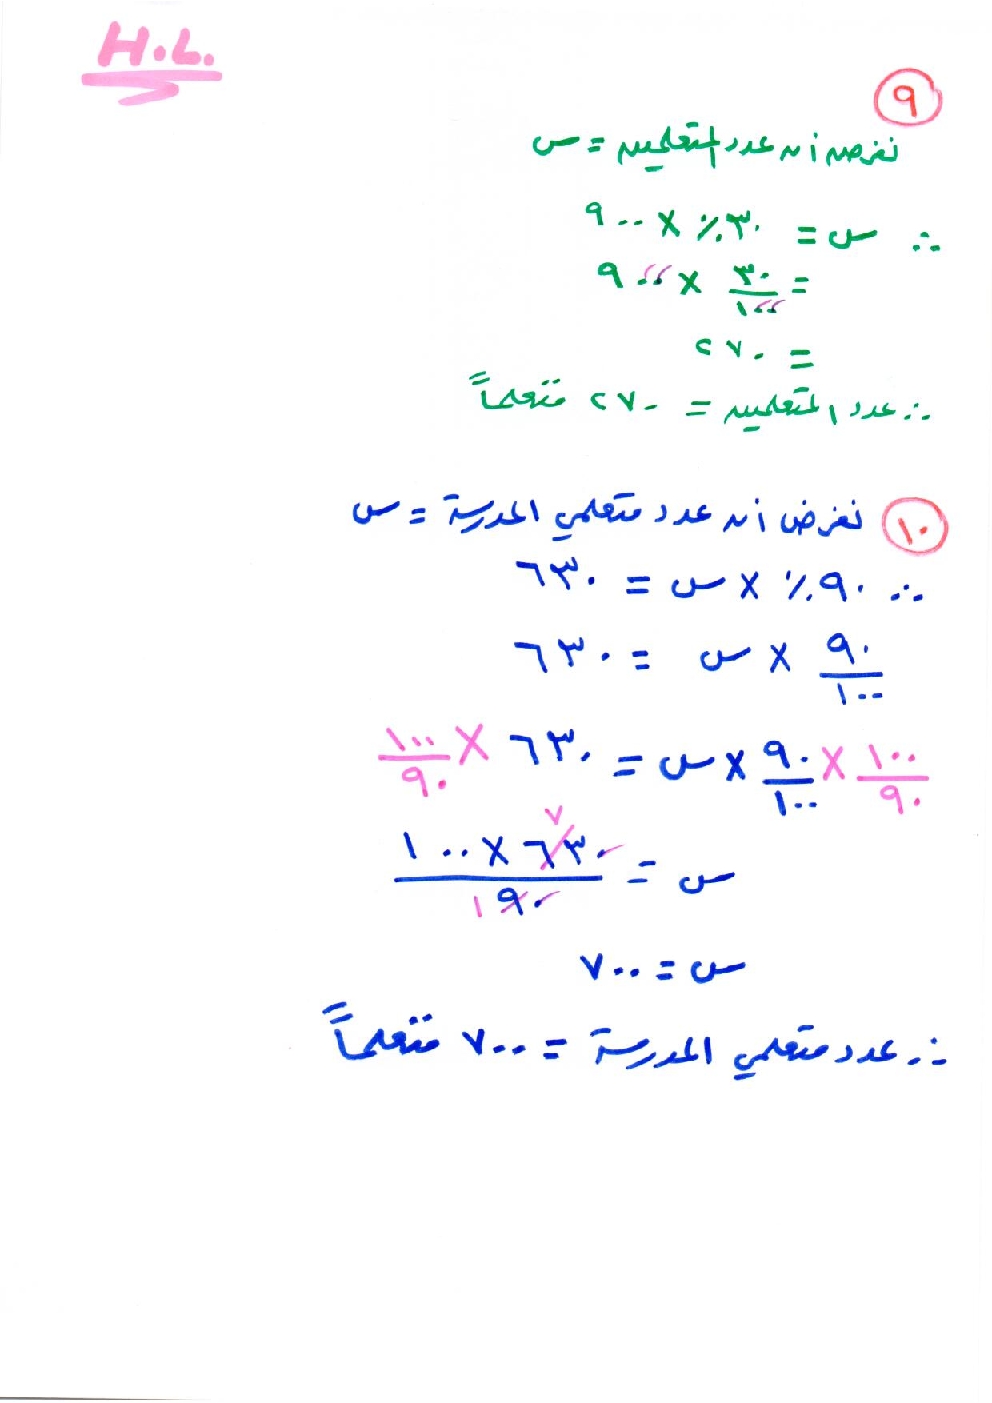 H.L.
٩
نفرض أن عدد المتعلمين = س
∴ س = ٣٠٪ × ٩٠٠
= ٣٠/١٠٠ × ٩٠٠
= ٢٧٠
∴ عدد المتعلمين = ٢٧٠ متعلماً
١٠ نفرض أن عدد متعلمي المدرسة = س
∴ ٩٠٪ × س = ٦٣٠
٩٠/١٠٠ × س = ٦٣٠
١٠٠/٩٠ × ٩٠/١٠٠ × س = ٦٣٠ × ١٠٠/٩٠
٧
س = ٦٣٠ × ١٠٠ / ٩٠
١
س = ٧٠٠
∴ عدد متعلمي المدرسة = ٧٠٠ متعلماً